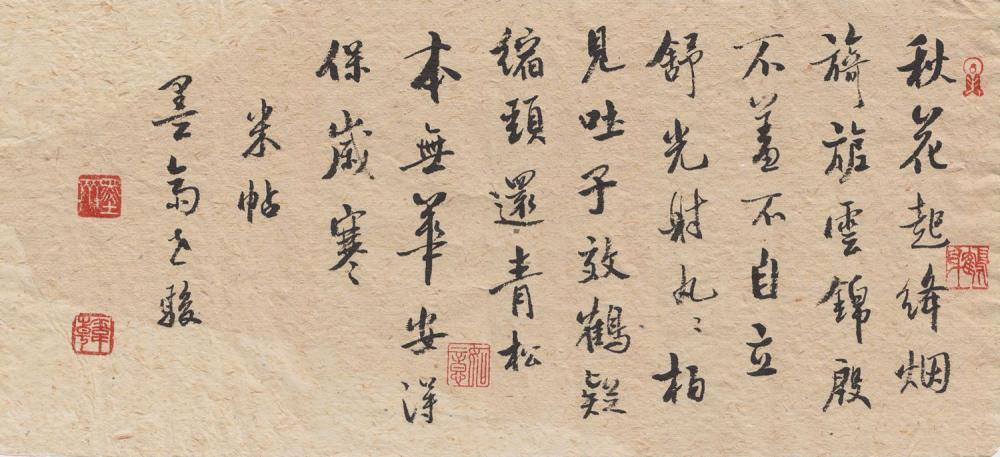 秋花起絳烟
旖旎雲錦殷
不羞不自立
舒光射丸〻柏
見吐子效鶴疑
縮頸還青松
本無華安得
保歲寒
米帖
墨
駿